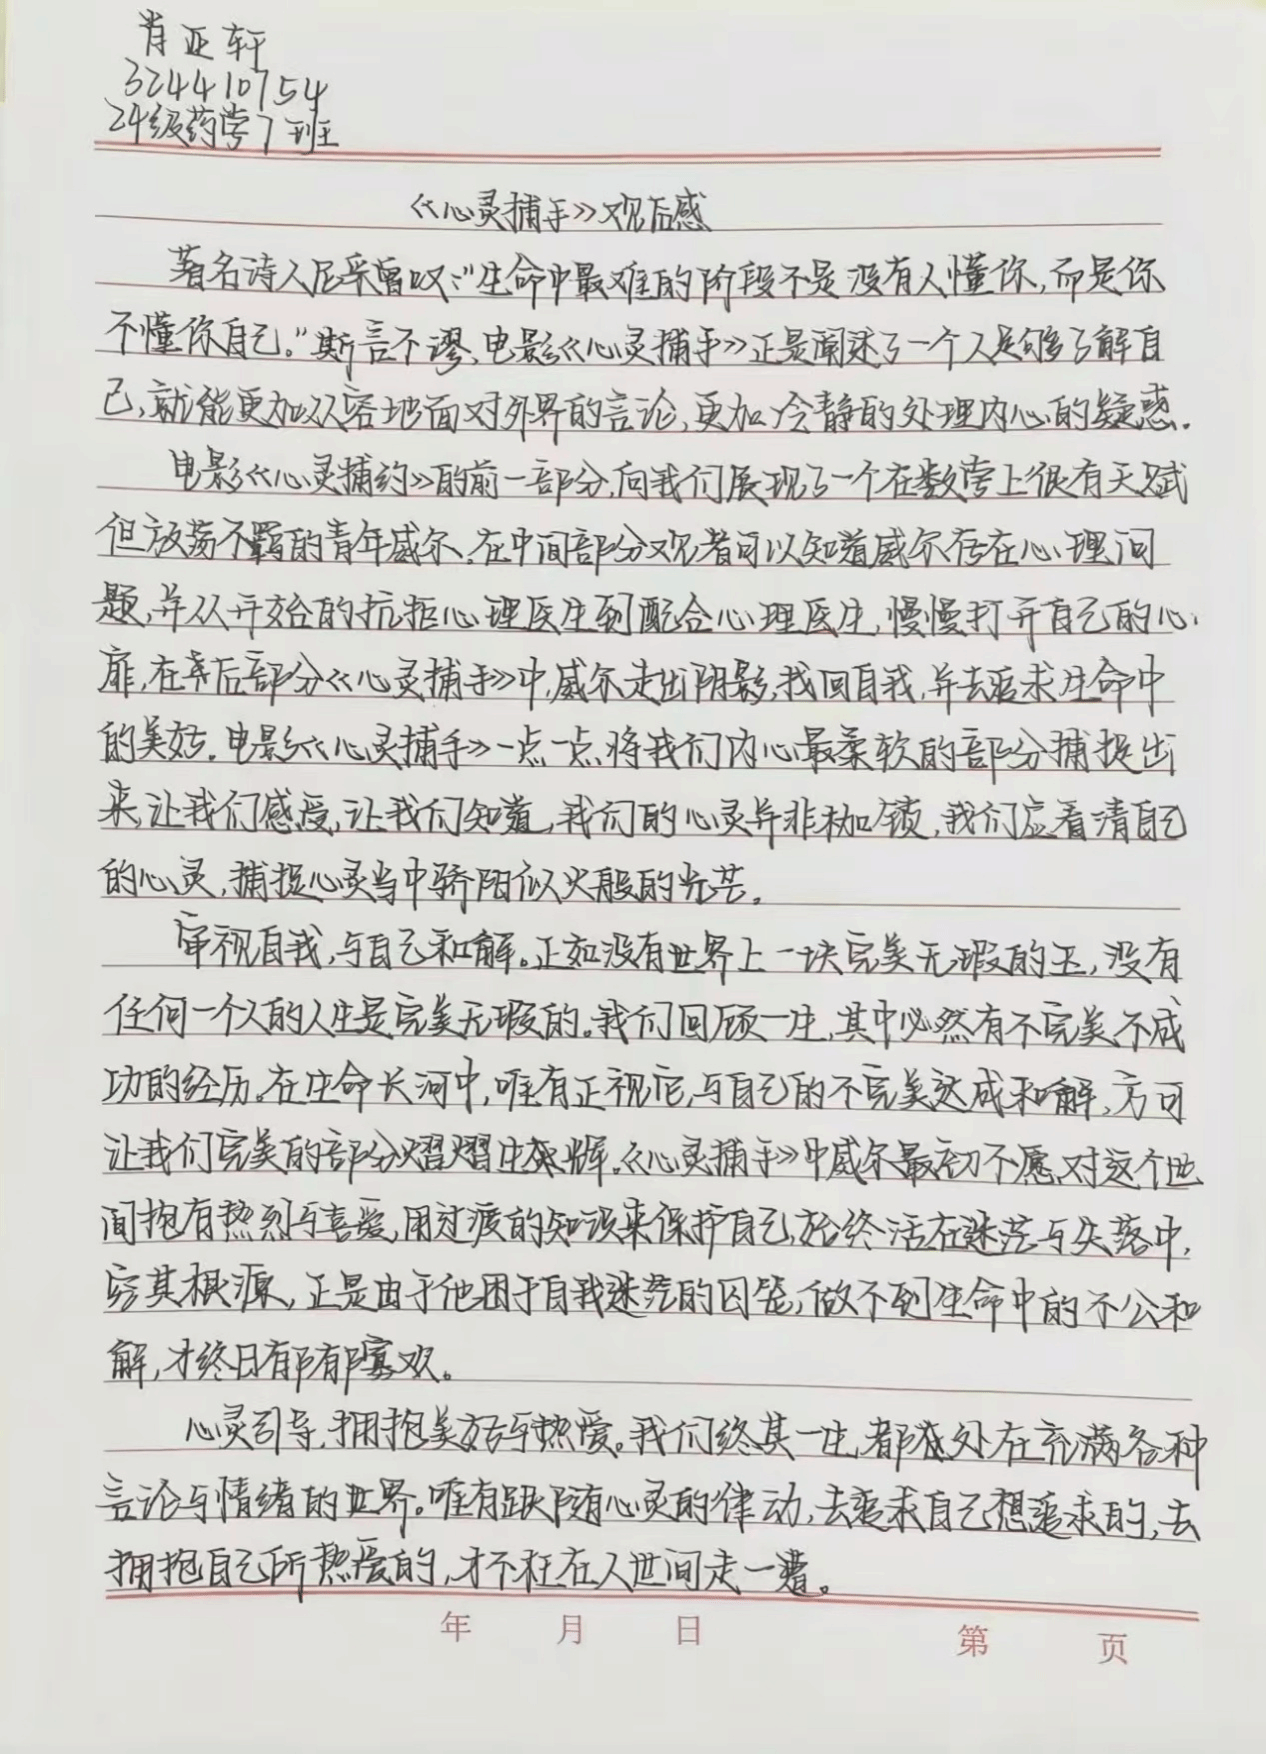 肖亚轩
324410754
24级药学7班
《心灵捕手》观后感
著名诗人尼采曾叹:"生命中最难的阶段不是没有人懂你,而是你
不懂你自己。"斯言不谬,电影《心灵捕手》正是阐述了一个人足够了解自
己,就能更加从容地面对外界的言论,更加冷静的处理内心的疑惑.
电影《心灵捕约》的前一部分,向我们展现了一个在数学上很有天赋
但放荡不羁的青年威尔,在中间部分观者可以知道威尔存在心理问
题,并从开始的抗拒心理医生到配合心理医生,慢慢打开自己的心
扉,在最后部分《心灵捕手》中,威尔走出阴影,找回自我,并去追求生命中
的美好.电影《心灵捕手》一点一点将我们内心最柔软的部分捕捉出
来,让我们感受,让我们知道,我们的心灵并非枷锁,我们应看清自己
的心灵,捕捉心灵当中骄阳似火般的光芒。
审视自我,与自己和解。正如没有世界上一块完美无瑕的玉,没有
任何一个人的人生是完美无瑕的。我们回顾一生,其中必然有不完美,不成
功的经历。在生命长河中,唯有正视它,与自己的不完美达成和解,方可
让我们完美的部分熠熠生辉。《心灵捕手》中威尔最初不愿对这个世
间抱有热烈与喜爱,用过渡的知识来保护自己,始终活在迷茫与失落中,
究其根源,正是由于他困于自我迷茫的囚笼,做不到生命中的不公和
解,才终日郁郁寡欢。
心灵引导,拥抱美好与热爱。我们终其一生,都处在充满各种
言论与情绪的世界。唯有跟随心灵的律动,去追求自己想追求的,去
拥抱自己所热爱的,才不枉在人世间走一遭。
年 月 日 第 页